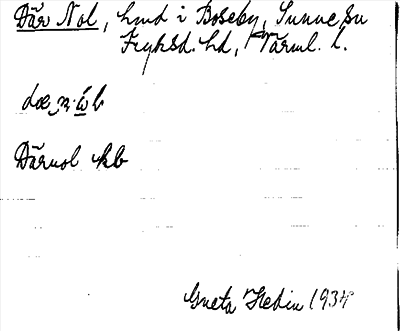 Där Nol, hmd i Boseby, Sunne sn
Fryksd. hd, Värml. l.
Därnol kb
Greta Hedin 1934